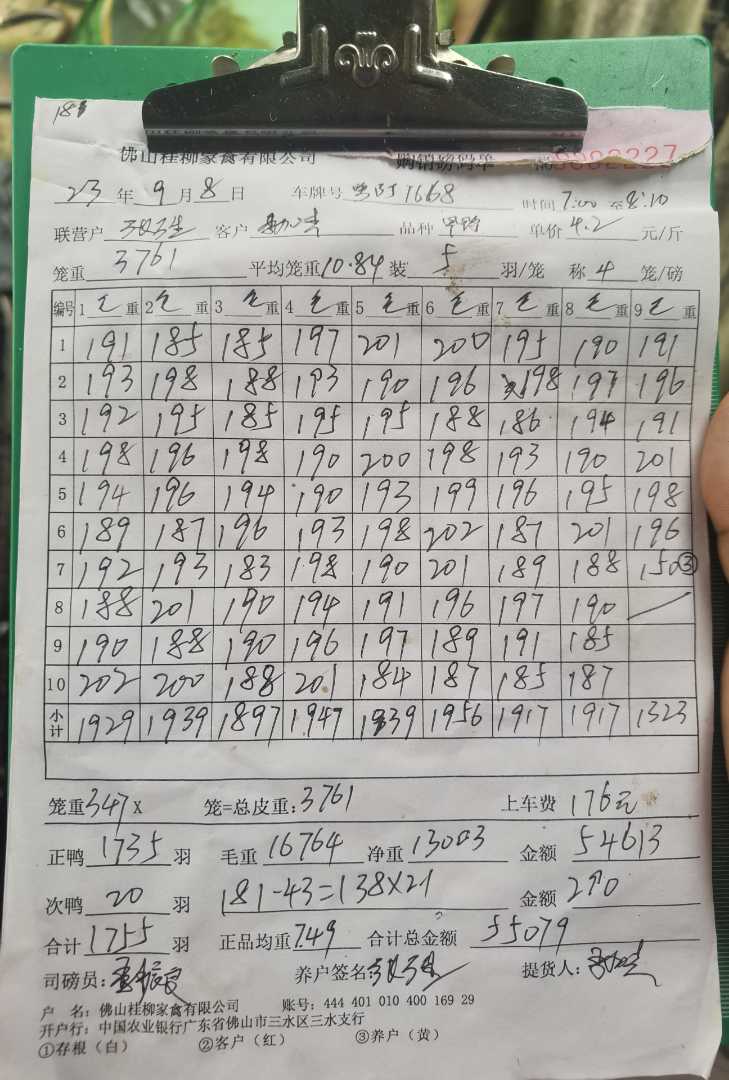 佛山桂柳家禽有限公司 购销磅码单 0002227
23 年 9 月 8 日 车牌号 1668 时间 7:00 至 8:10
联营户 客户 品种 单价 4.2 元/斤
笼重 3761 平均笼重 10.84 装 5 羽/笼 称 4 笼/磅
编号 1 毛 重 2 毛 重 3 毛 重 4 毛 重 5 毛 重 6 毛 重 7 毛 重 8 毛 重 9 毛 重
1 191 185 185 197 201 200 195 190 191
2 193 198 188 193 190 196 198 197 196
3 192 195 185 195 195 188 186 194 191
4 198 196 198 190 200 198 193 190 201
5 194 196 194 190 193 199 196 195 198
6 189 187 196 193 198 202 187 201 196
7 192 193 183 198 190 201 189 188 150③
8 188 201 190 194 191 196 197 190
9 190 188 190 196 197 189 191 185
10 202 200 188 201 184 187 185 187
小计 1929 1939 1897 1947 1939 1956 1917 1917 1323
笼重 347 X 笼=总皮重: 3761 上车费 176元
正鸭 1735 羽 毛重 16764 净重 13003 金额 54613
次鸭 20 羽 181-43=138×21 金额 290
合计 1755 羽 正品均重 7.49 合计总金额 55079
司磅员: 养户签名 提货人:
户 名: 佛山桂柳家禽有限公司 账号: 444 401 010 400 169 29
开户行: 中国农业银行广东省佛山市三水区三水支行
①存根(白) ②客户(红) ③养户(黄)